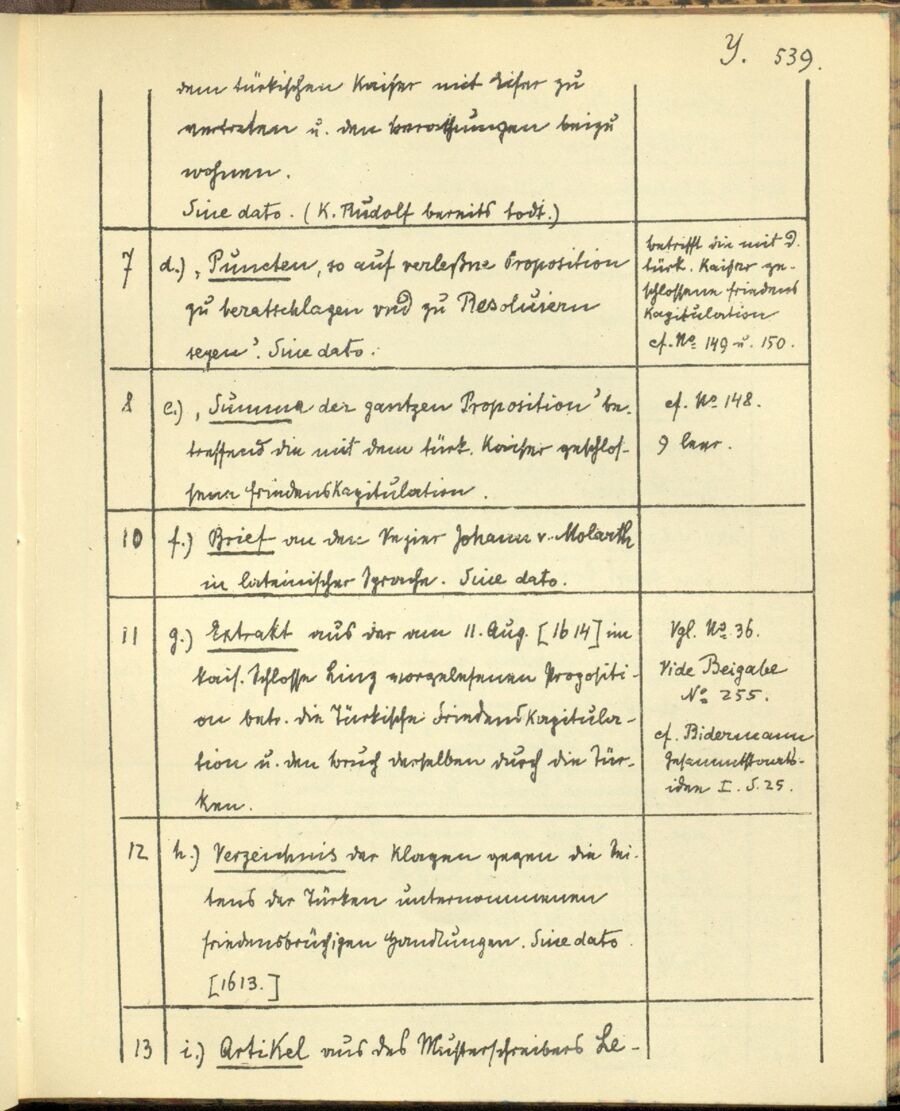 Y. 539.
dem türkischen Kaiser mit Eifer zu
vertreten u. den Berathungen beizu
wohnen.
Sine dato. (K. Rudolf bereits todt.)
7 d.) „Puncten, so auf verleßne Proposition
zu beratschlagen vnd zu Resoluiern
seyen“. Sine dato.
betrifft die mit d.
türk. Kaiser ge-
schlossene Friedens
Kapitulation
cf. No 149 u. 150.
8 e.) „Summa der gantzen Proposition“ be-
treffend die mit dem türk. Kaiser geschlos-
sene Friedenskapitulation.
cf. No 148.
9 leer.
10 f.) Brief an den Vezier Johann v. Molarth
in lateinischer Sprache. Sine dato.
11 g.) Extrakt aus der am 11. Aug. [1614] im
kais. Schlosse Linz vorgelesenen Propositi-
on betr. die Türkische Friedenskapitula-
tion u. den Bruch derselben durch die Tür-
ken.
Vgl. No 36.
Vide Beigabe
No 255.
cf. Bidermann
Gesammtstaats-
idee I. S. 25.
12 h.) Verzeichnis der Klagen gegen die Sei-
tens der Türken unternommenen
friedensbrüchigen Handlungen. Sine dato.
[1613.]
13 i.) Artikel aus des Musterschreibers Le-